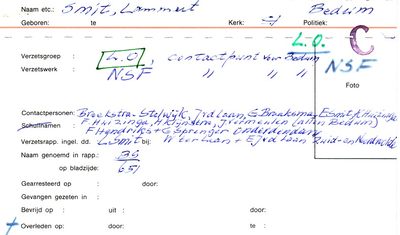 Naam etc.: Smit, Lammert Bedum
Geboren: te Kerk: Politiek:
L.O. C
Verzetsgroep : L.O, contactpunt voor Bedum
Verzetswerk : NSF " " " NSF
Foto
Contactpersonen: Broekstra-Etelwijk, Jvd Laan, G Braaksma, E Smit, A Huizinga
Schuilnamen : F Huizinga, H Rijndena, J Vermeulen (allen Bedum)
F Hendriks + G Sprenger Onderdendam
Verzetsrapp. ingel. dd. L. Smit bij: W ter Laan + E Jvd Laan Zuid- en Noordwolde
Naam genoemd in rapp.: 36
op bladzijde: 651
Gearresteerd op : door:
Gevangen gezeten in :
Bevrijd op : uit : door:
Overleden op: door: te :